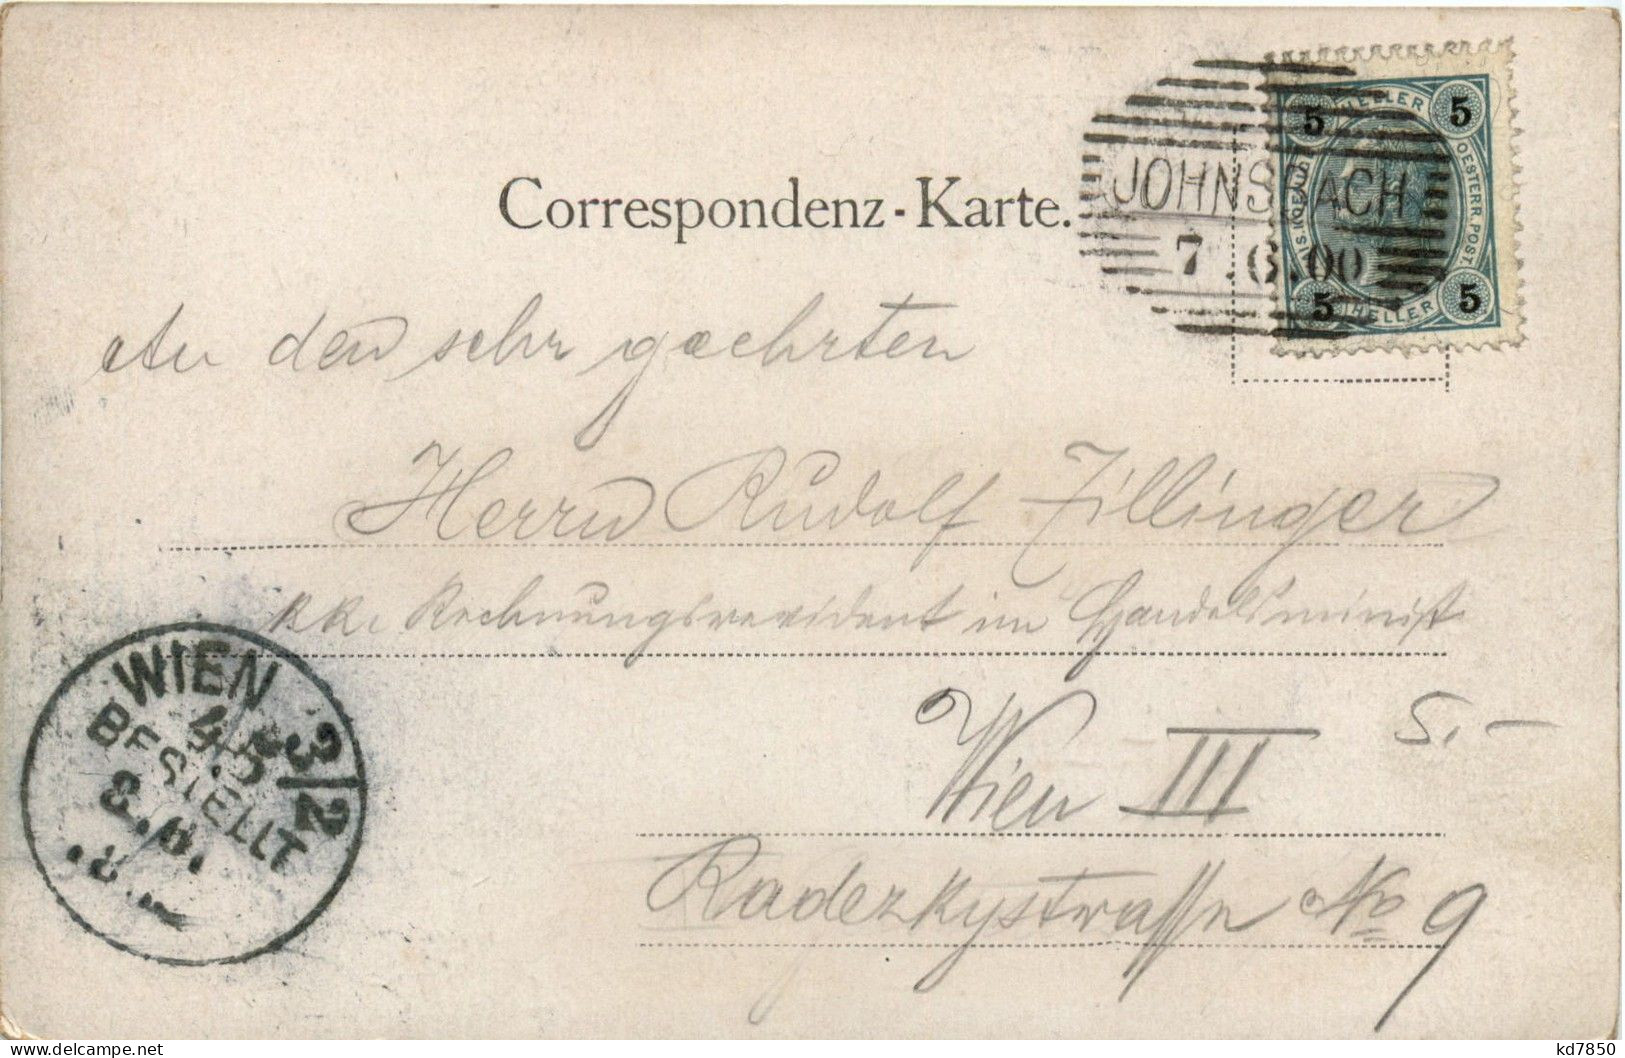 Correspondenz-Karte.
JOHNSBACH
7.6.00
5 HELLER 5
OESTERR. POST.
5 HELLER 5
An den sehr geehrten
Herrn Rudolf Zillinger
k.k. Rechnungsrevident im Handelsminist
Wien III
S. –
Radezkystrasse No 9
WIEN 3/2
BESTELLT
kd7850